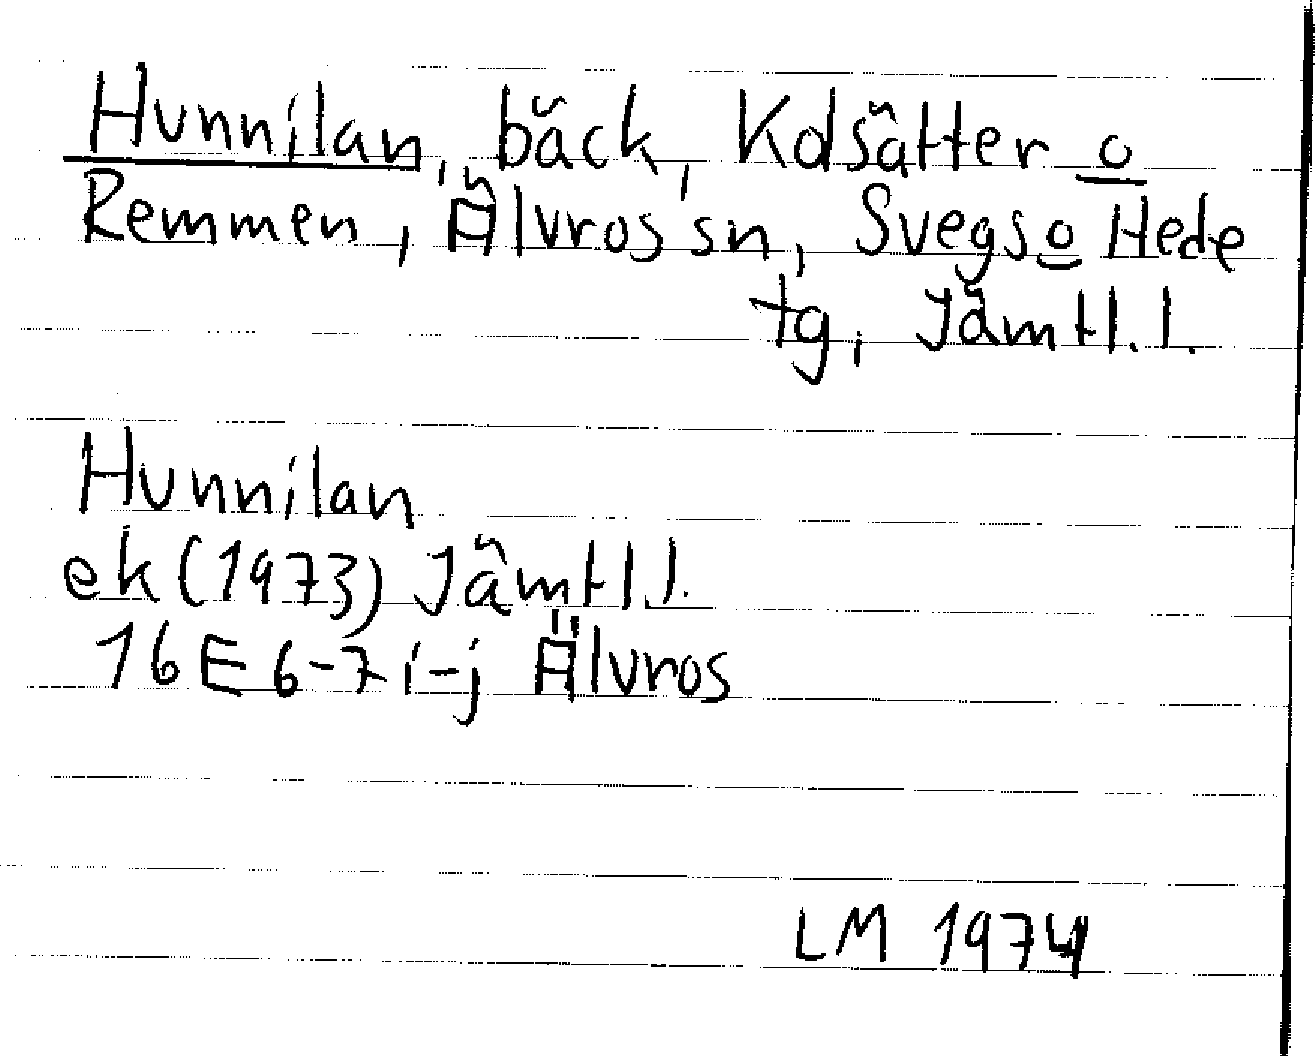 Hunnilan, bäck, Kolsätter o
Remmen, Älvros sn, Svegs o Hede
tg, Jämtl. l.
Hunnilan
ek (1973) Jämtl. l.
16 E 6-7 i-j Älvros
LM 1974